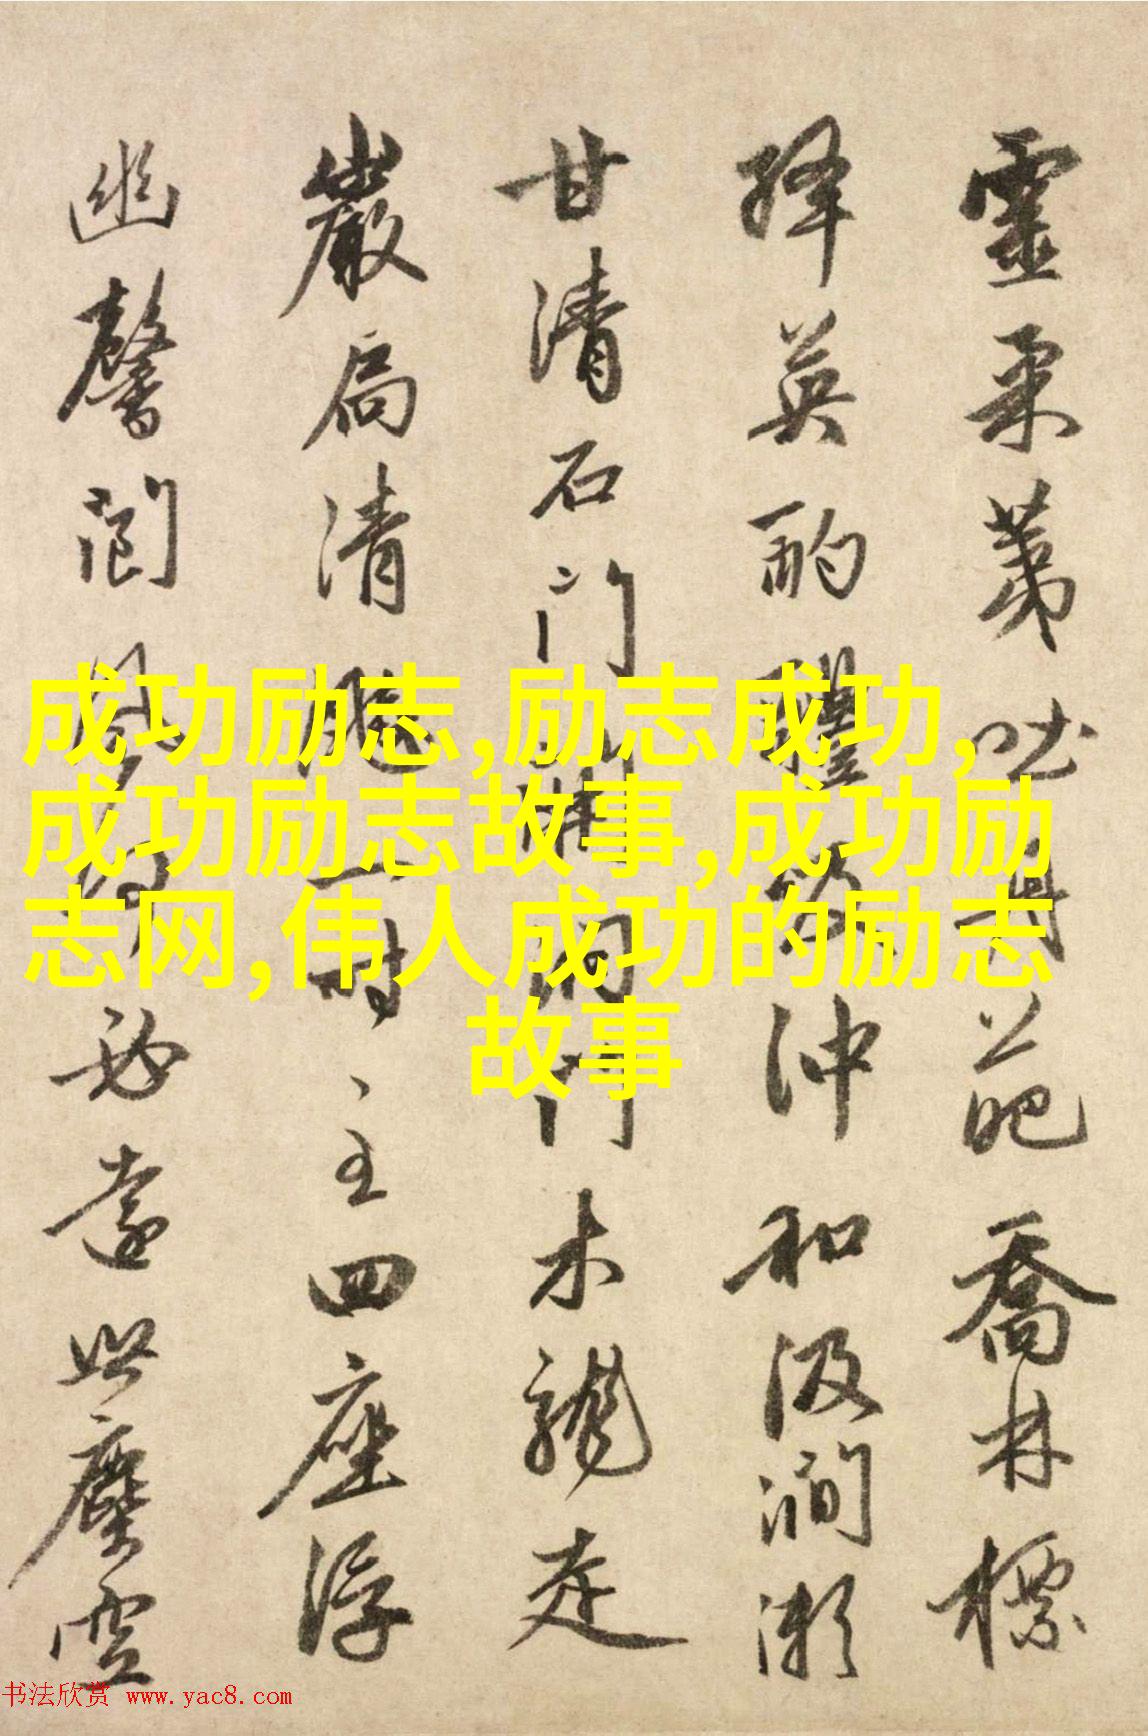 靈采蕚吐丹葩喬林標
絳英酌醴沖和汲澗瀨
甘清石門石門木龍走
巖扃清一時主四座浮
幽馨閬必遠與塵雲
成功励志,励志成功,
成功励志故事,成功励
志网,伟人成功的励志
故事
书法欣赏 www.yac8.com